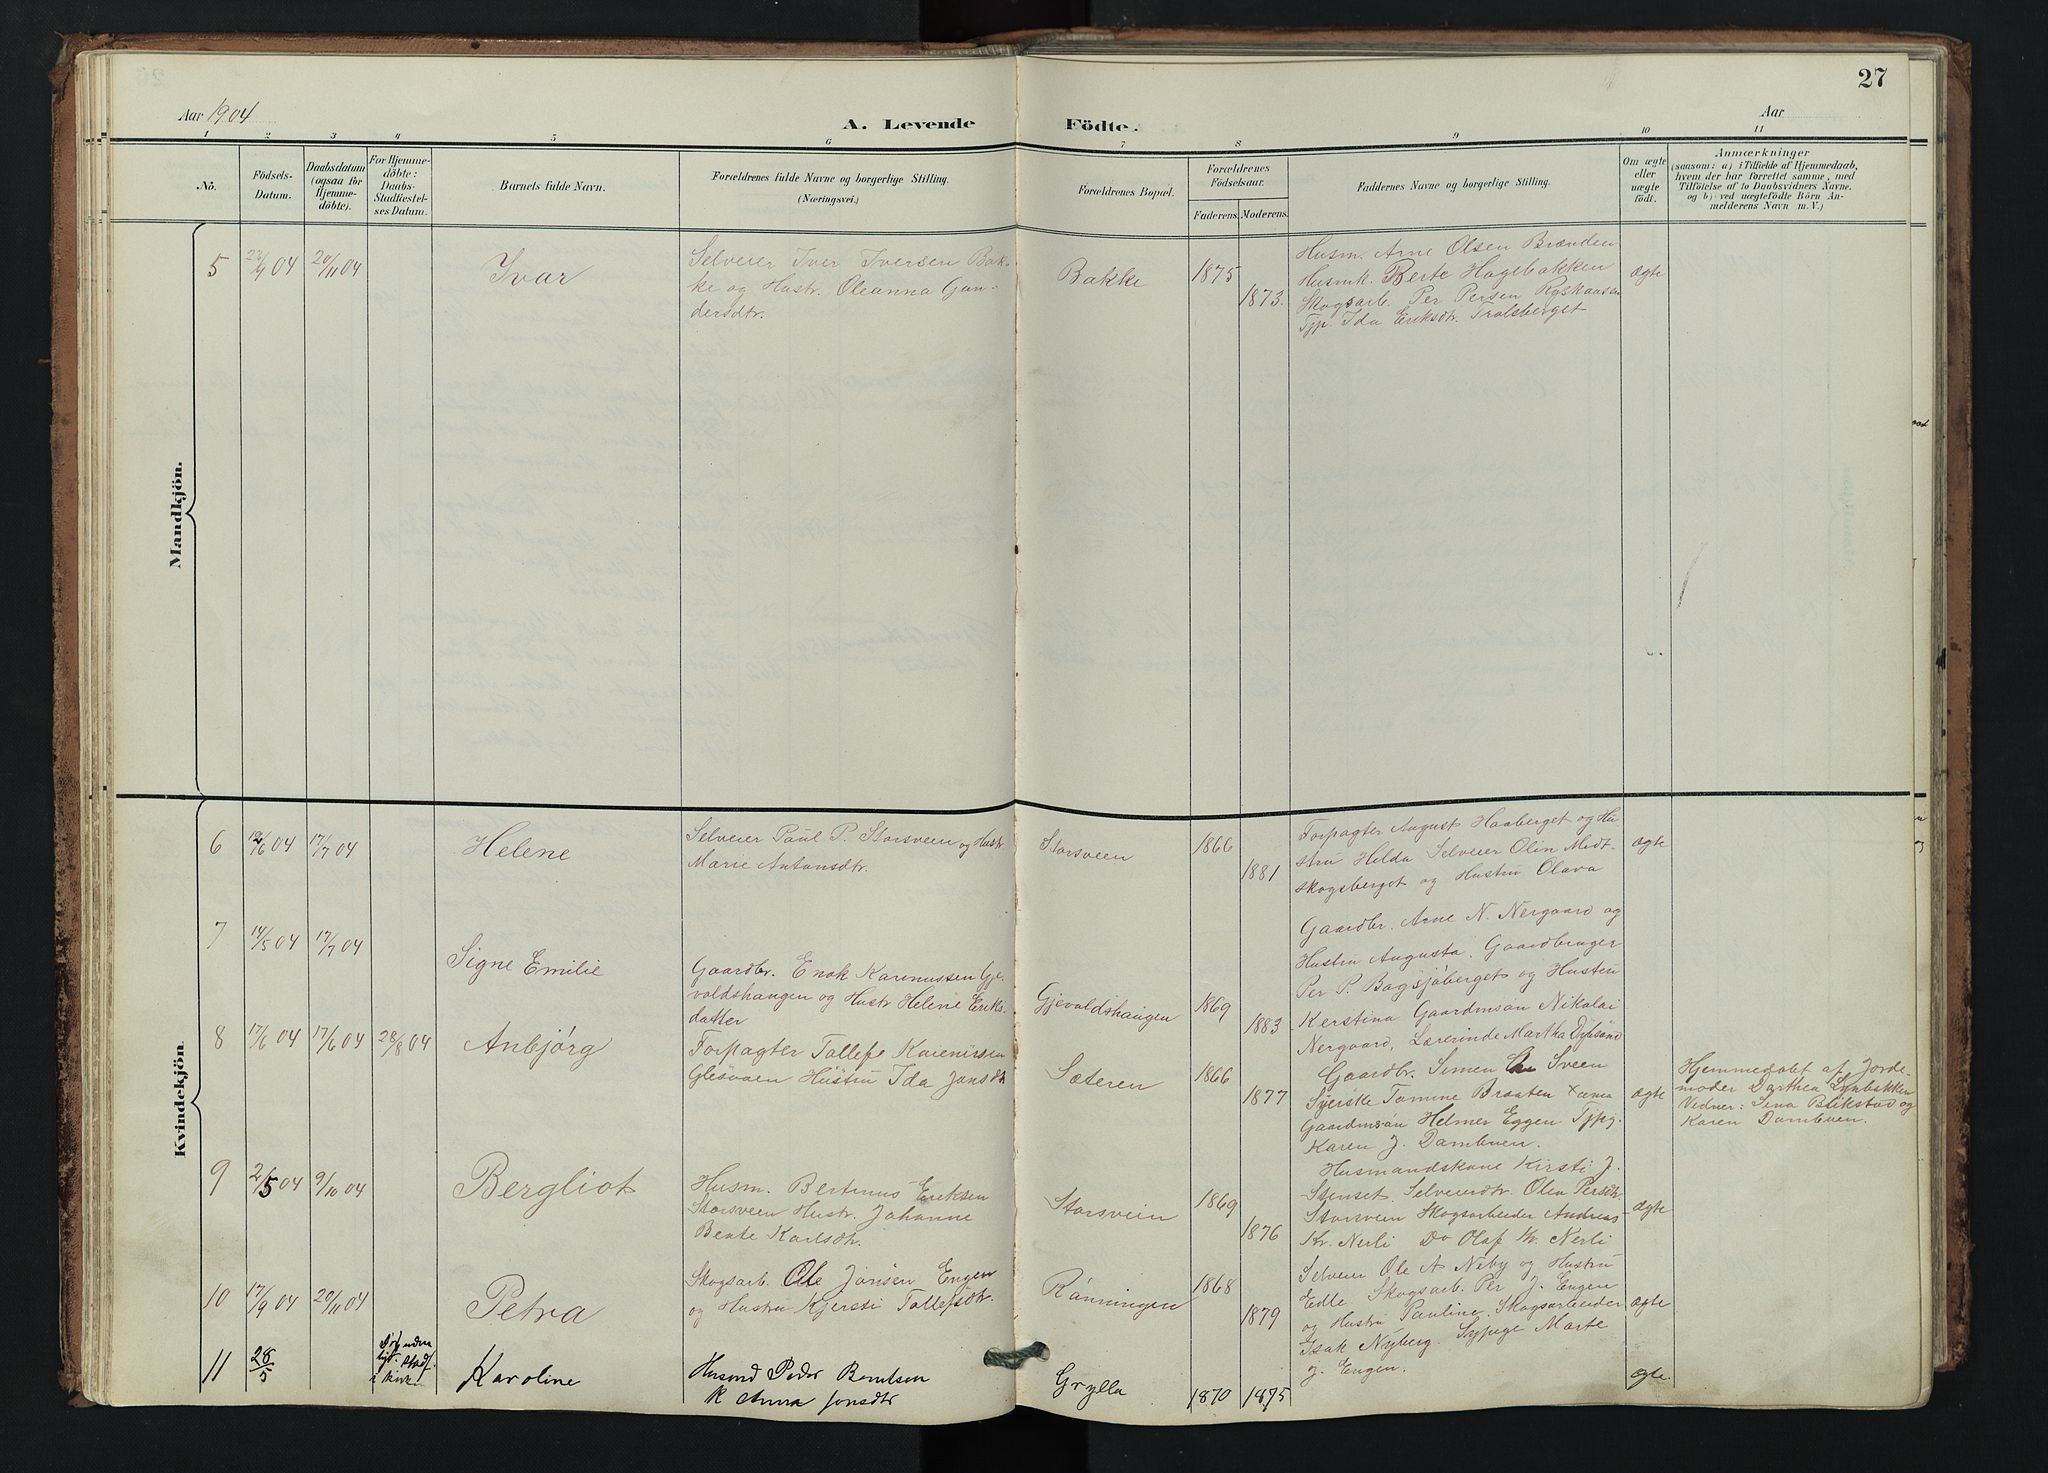 27
Aar 1904
A. Levende Födte.
Aar
1 2 3 4 5 6 7 8 9 10 11
No.
Födsels-
Datum.
Daabsdatum
(ogsaa för
Hjemme-
döbte).
For Hjemme-
döbte:
Daabs-
Stadfæstel-
ses Datum.
Barnets fulde Navn.
Forældrenes fulde Navne og borgerlige Stilling.
(Næringsvei.)
Forældrenes Bopæl.
Forældrenes
Födselsaar.
Faderens.
Moderens.
Faddernes Navne og borgerlige Stilling.
Om ægte
eller
uægte
födt.
Anmærkninger
(saasom: a) i Tilfælde af Hjemmedaab,
hvem der har forrettet samme, med
Tilföielse af to Daabsvidners Navne,
og b) ved uægtefödte Börn An-
melderens Navn m. V.)
Mandkjön.
5
04
20/11 04
Ivar
Selveier Iver Iversen Bak-
ke og Hustr. Oleanna Gun-
dersdtr.
Bakke
1875
1873.
Husm. Arne Olsen Brænden
Husmk. Berte Hagebakken
Skogsarb. Per Persen
Tjp. Ida Eriksdtr. Trolsberget
ægte
Kvindekjön.
6
04
17/7 04
Helene
Selveier Paul P. Storsveen og Hustr.
Marie Antonsdtr.
Storsveen
1866
1881
Forpagter August Haaberget og Hu-
stru Hilda Selveier Olin Midt-
skogsberget og Hustru Olava
ægte
7
14/5 04
17/7 04
Signe Emilie
Gaardbr. Enok Gje-
voldshaugen og Hustr Helene Eriks
datter
Gjevoldshaugen
1869
1883
Gaardbr. Arne N. Nergaard og
Hustru Augusta. Gaardbruger
Per P. Bagsjøberget og Hustru
Kerstina Gaardmsøn Nikolai
Nergaard, Lærerinde Martha
8
17/6 04
17/6 04
28/8 04
Anbjørg
Forpagter Tollef
Hustru Ida Jonsdtr
Sæteren
1866
1877
Gaardbr. Simen Sveen
Tomine Braaten
Gaardmsøn Helmer Eggen Tjpg.
Karen J. Dambuen.
ægte
Hjemmedøbt af Jorde-
moder Darthea
Vidner: Sina Blikstad og
Karen Dambuen.
9
2/5 04
9/10 04
Bergliot
Husm. Bertinus Eriksen
Storsveen Hustr. Johanne
Beate Karlsdtr.
Storsveen
1869
1876
Husmandskone Kirsti J.
Stenset. Selveierdtr. Olea Persdtr.
Storsveen Skogsarbeider Andreas
Kr. Nerli Do Olaf Kr. Nerli
ægte
10
17/9 04
20/11 04
Petra
Skogsarb. Ole Jonsen Engen
og Hustru Kjersti Tollefsdtr.
Rønningen
1868
1879
Selveier Ole A Neby og Hustru
Edle Skogsarb. Per J. Engen
og Hustru Pauline. Skogsarbeider
Isak Nyberg. Sypige Marte
J. Engen.
ægte
11
28/5
Karoline
Husmd Peder Berntsen
k Anna Jonsdtr
Grylla
1870
1875
ægte.